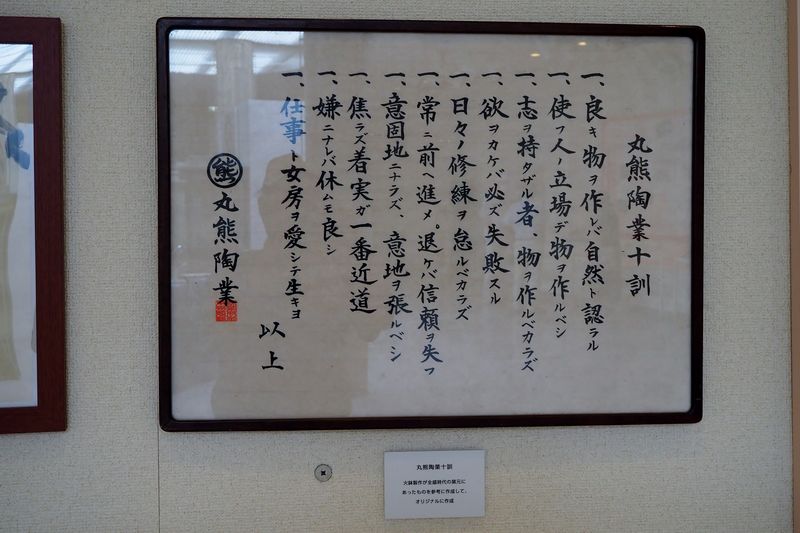 丸熊陶業十訓
一、良キ物ヲ作レバ自然ト認ラル
一、使フ人ノ立場デ物ヲ作ルベシ
一、志ヲ持タザル者、物ヲ作ルベカラズ
一、欲ヲカケバ必ズ失敗スル
一、日々ノ修練ヲ怠ルベカラズ
一、常ニ前ヘ進メ。退ケバ信頼ヲ失フ
一、意固地ニナラズ、意地ヲ張ルベシ
一、焦ラズ着実ガ一番近道
一、嫌ニナレバ休ムモ良シ
一、仕事ト女房ヲ愛シテ生キヨ
以上
熊 丸熊陶業
丸熊陶業十訓
火鉢製作が全盛時代の窯元に
あったものを参考に作成して、
オリジナルに作成